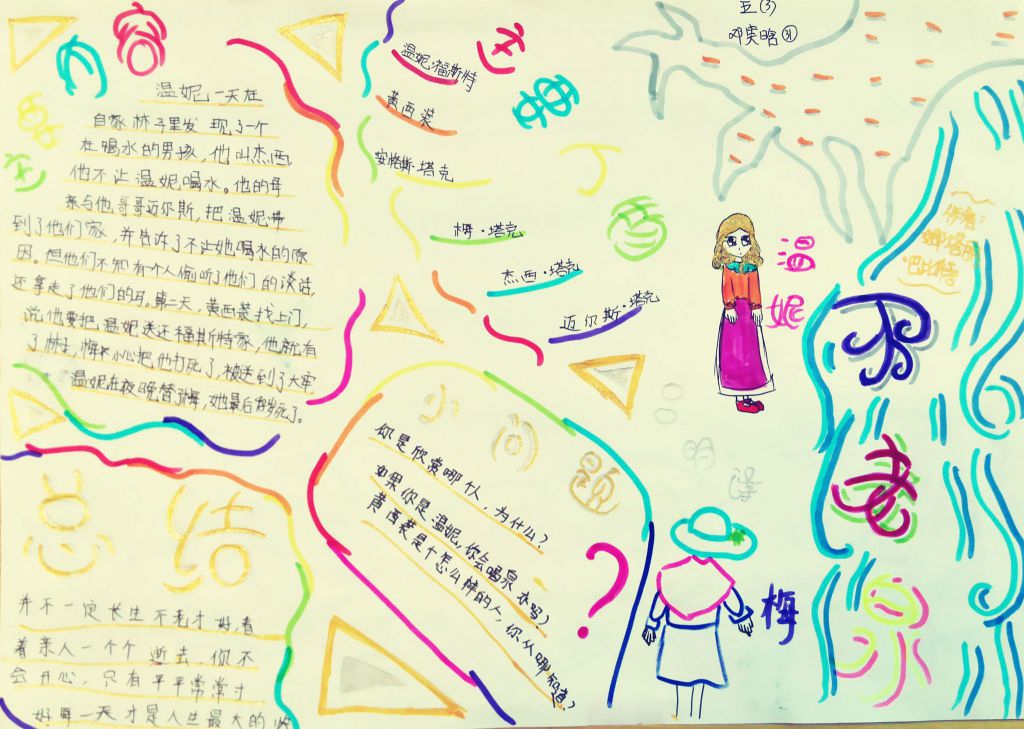 五(3)
内容
温妮一天在
自家林子里发现了一个
在喝水的男孩，他叫杰西，
他不让温妮喝水。他的母
亲与他哥哥迈尔斯，把温妮带
到了他们家，并告诉了不让她喝水的原
因。但他们不知有个人偷听了他们的谈话，
还拿走了他们的马。第二天，黄西装找上门，
说他要把温妮送还福斯特家，他就有
了林子，梅不小心把他打死了，被送到了大牢
温妮在夜晚替了梅，她最后老死了。
主要
人
温妮·福斯特
黄西装
安格斯·塔克
梅·塔克
杰西·塔克
迈尔斯·塔克
温妮
梅
作者：
娜塔莉
·巴比特
不老泉
小问题
你是欣赏哪个人，为什么？
如果你是温妮，你会喝泉水吗？
黄西装是个怎么样的人，你从哪知道？
？
总结
并不一定长生不老才好，看
着亲人一个个逝去，你不
会开心，只有平平常常才
好每一天才是人生最大的收